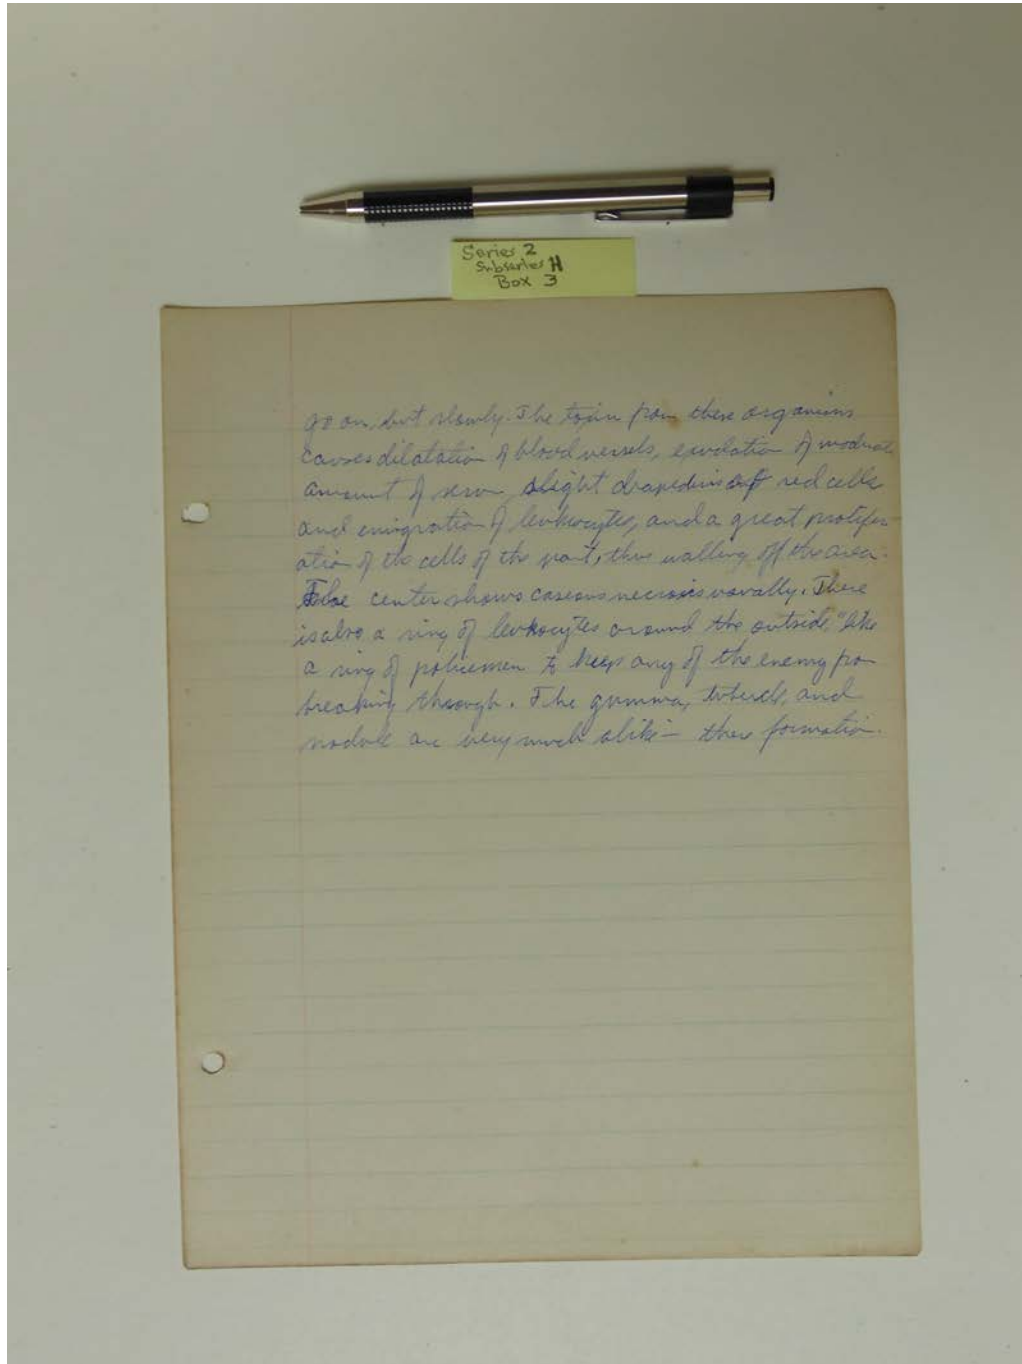 Series 2
Subseries H
Box 3
go on, but slowly. The toxin from these organisms
causes dilatation of blood vessels, exudation of moderate
amount of serum, slight diapedesis of red cells
and emigration of leukocytes, and a great prolifer-
ation of the cells of the part, thus walling off the area.
The center shows caseous necrosis usually. There
is also a ring of leukocytes around the outside, "like
a ring of policemen to keep any of the enemy from
breaking through. The gumma, tubercle, and
nodule are very much alike - formation.